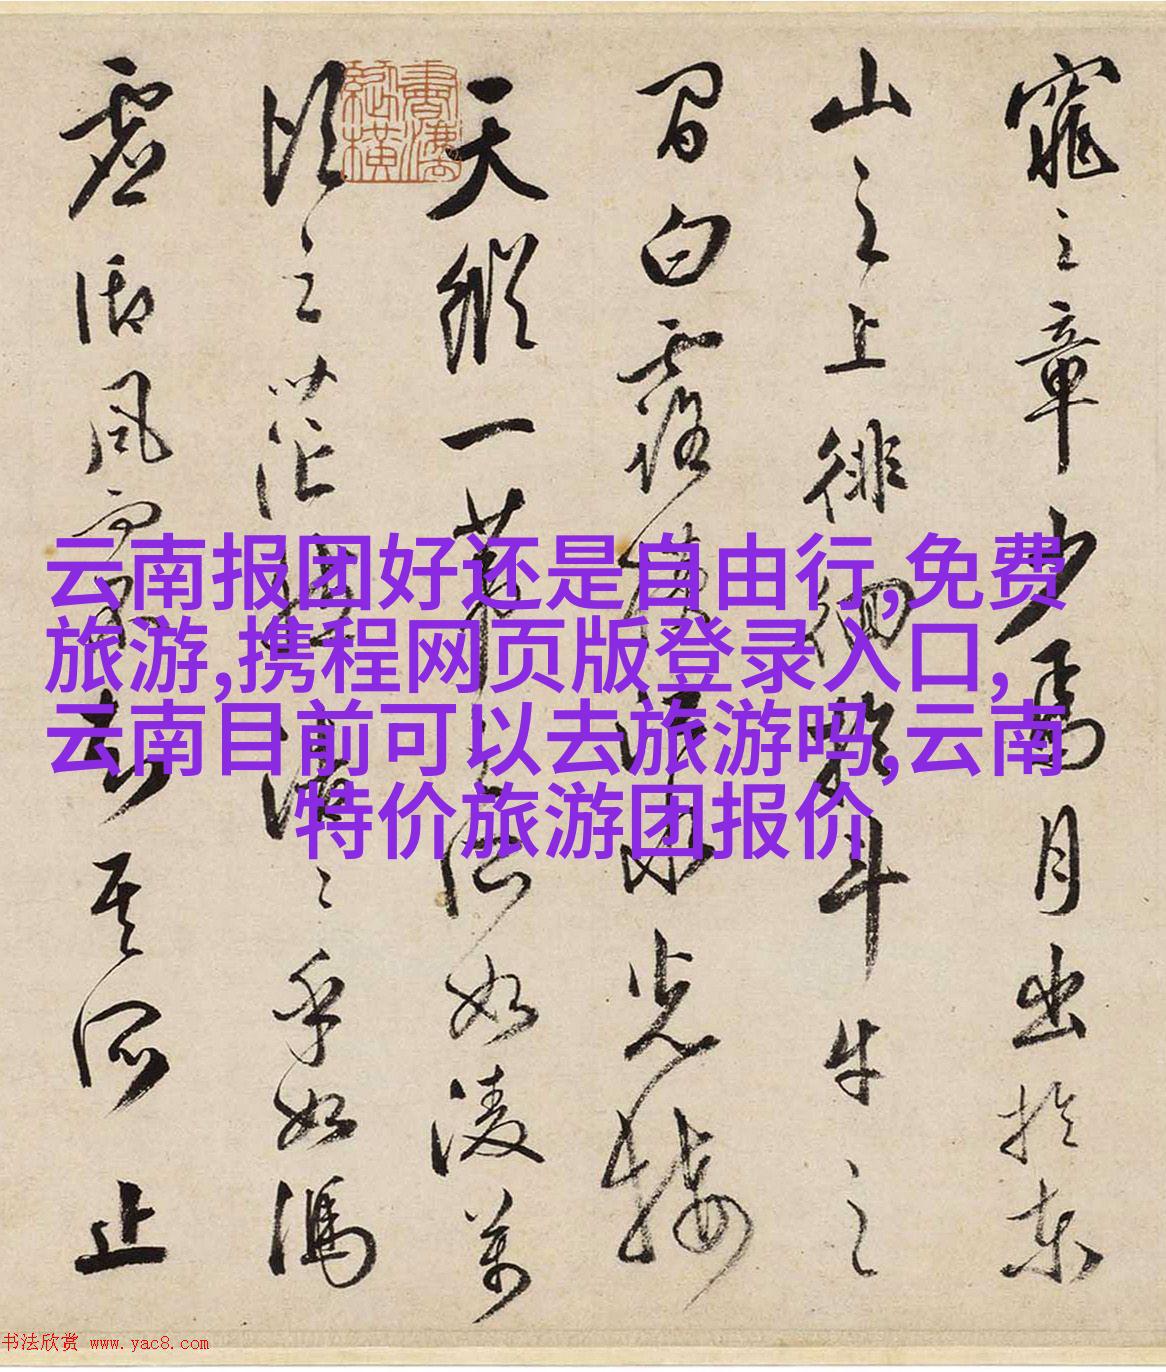 窕之章少焉月出於東
山之上徘徊於斗牛之
間白露橫江水光接
天縱一葦之所如淩萬
頃之茫然浩〻乎如馮
虛御風而不知其所止
云南报团好还是自由行,免费
旅游,携程网页版登录入口,
云南目前可以去旅游吗,云南
特价旅游团报价
书法欣赏 www.yac8.com